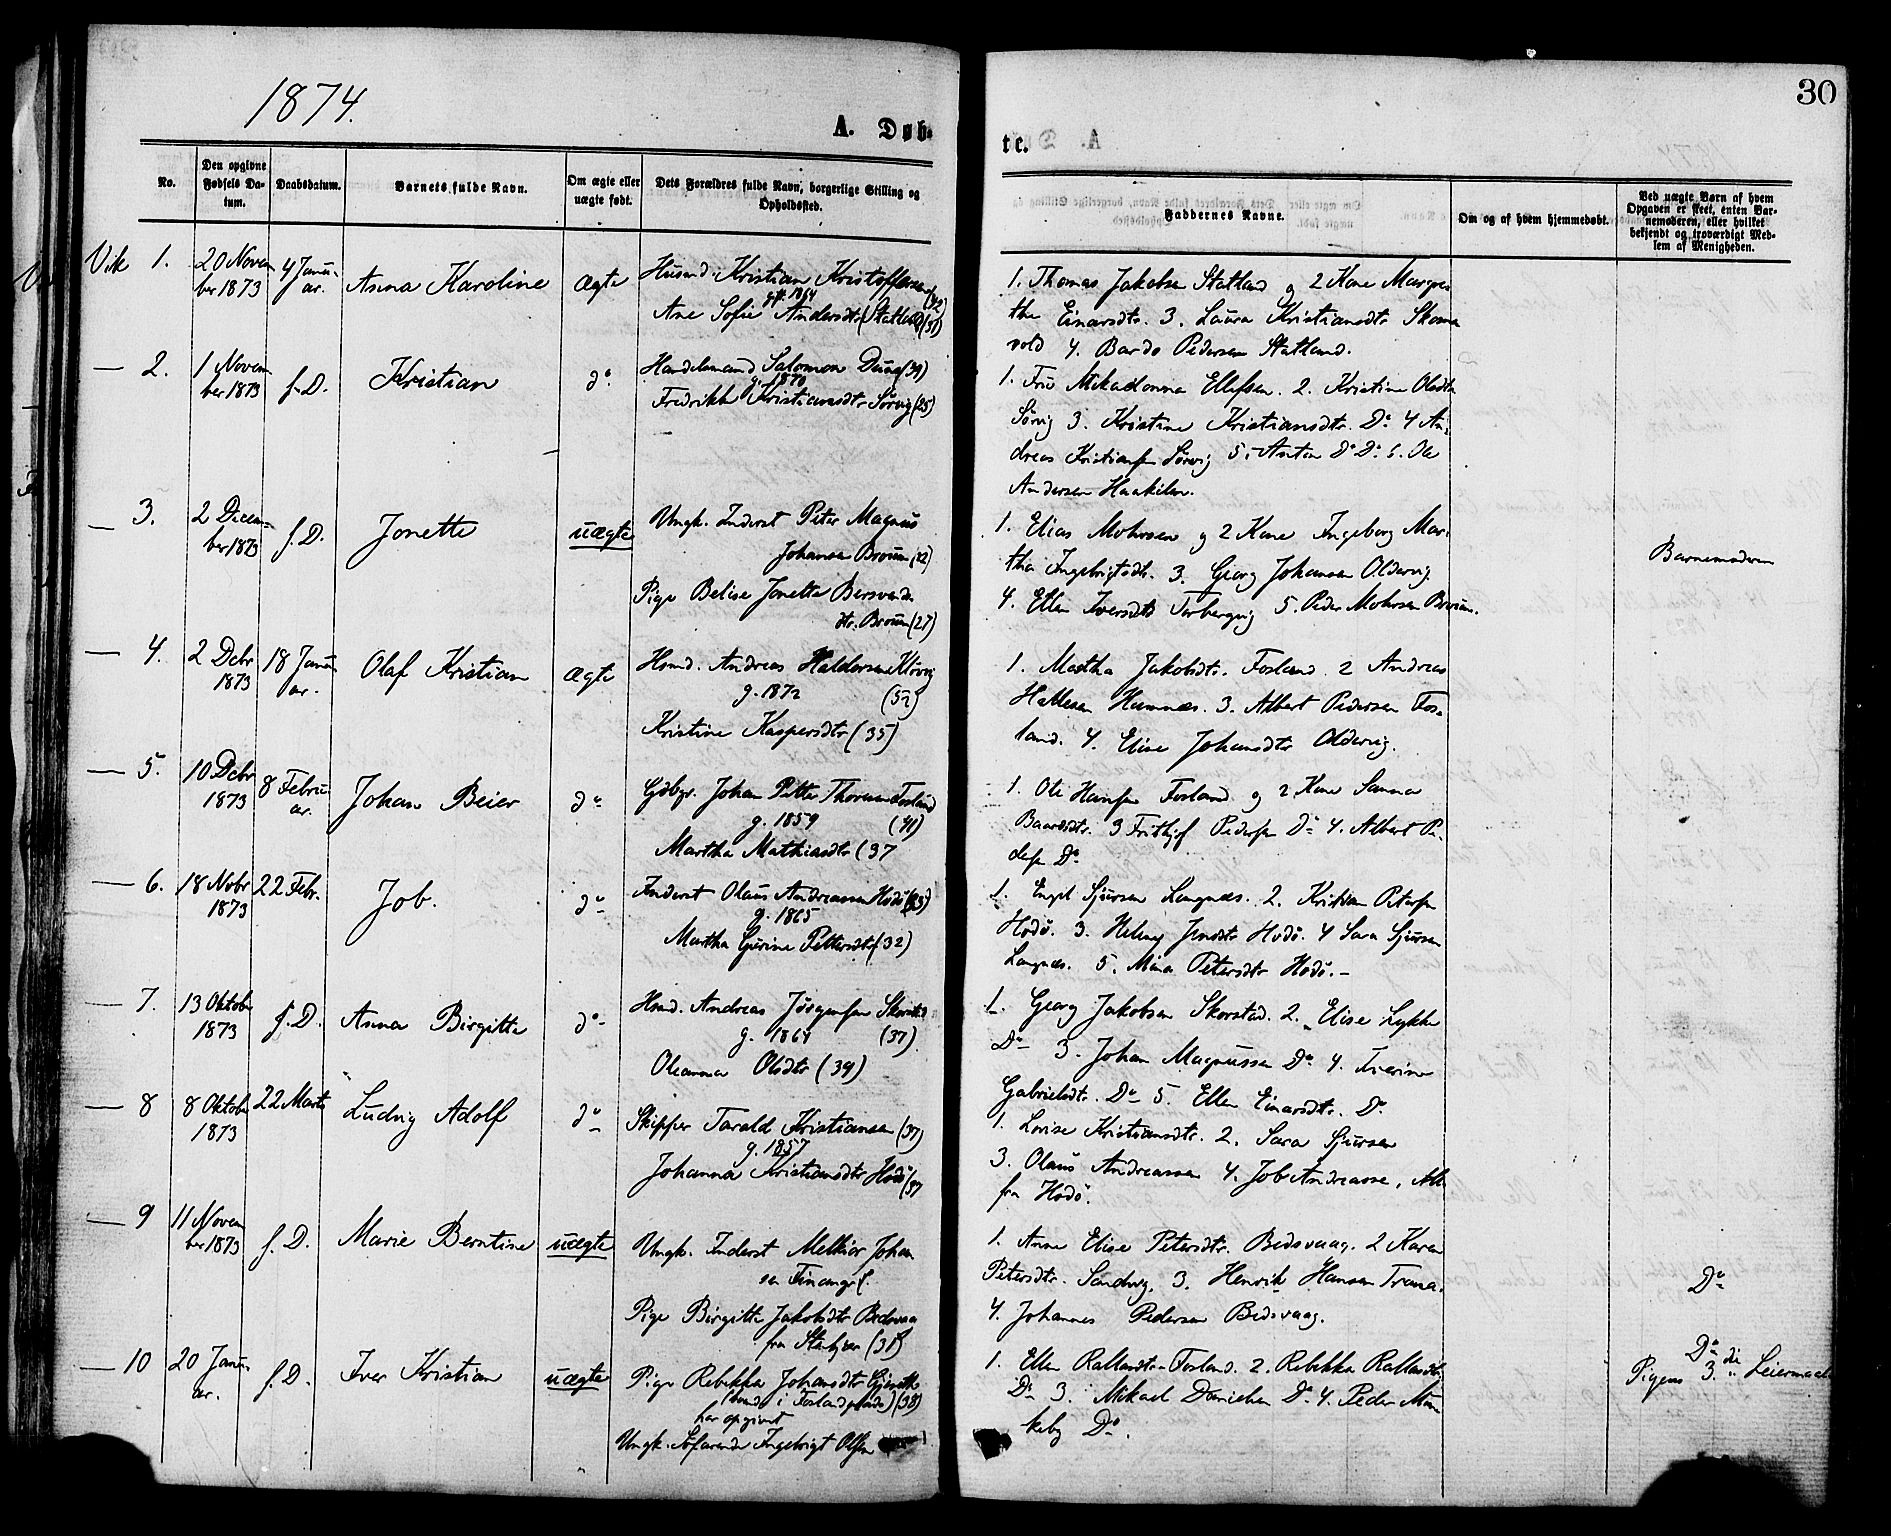 1874.
30
A. Døb-
te.
No.
Den opgivne Fødsels Da-tum.
Daabsdatum.
Barnets fulde Navn.
Om ægte eller uægte født.
Dets Forældres fulde Navn, borgerlige Stilling og Opholdssted.
Faddernes Navne.
Om og af hvem hjemmedøbt.
Ved uægte Børn af hvem Opgaven er skeet, enten Bar-nemoderen, eller hvilket bekjendt og troværdigt Med-lem af Menigheden.
Vik 1.
20 Novem
ber 1873
4 Janu-
ar.
Anna Karoline
Ægte
Husmd. Kristian Kristoffersen (42)
gt. 1864
Ane Sofie Andersdtr (Statland)
1. Thomas Jakobsen Statland og 2 Kone Margre
the Einarsdtr. 3. Laura Kristiansdtr
vold 4. Bardo Pedersen Statland.
— 2.
1 Novem
ber 1873
f. D.
Kristian
do.
Handelsmand Salomon Duna (39)
g. 1870
Fredrikke Kristiansdtr Sørvig (25)
1. Fru Mikaelonna Ellefsen. 2. Kristine Olsdtr
Sørvig 3. Kristine Kristiansdtr. Do 4 An-
dreas Kristiansen Sørvig 5. Anton Do Do 6. Ole
Andersen
— 3.
2 Decem-
ber 1873
f. D.
Jonette
uægte
Ungk. Inderst Peter Magnus
Johansen Broum (22)
Pige Jonette
dtr. Broum (27)
1. Elias Mohrsen og 2 Kone Ingeborg Mar-
tha Ingebrigtsdtr. 3. Georg Johansen Oldervig.
4. Ellen Iversdtr 5. Peder Mohrsen Broum.
Barnemodren
— 4.
2 Debr
1873
18 Janu
ar.
Olaf Kristian
Ægte
Husmd. Andreas Haldorsen
g. 1872 (52)
Kristine Kaspersdtr (35)
1. Martha Jakobsdtr. Fosland. 2 Andreas
Hamnes. 3. Albert Pedersen Fos-
land. 4. Elise Johansdtr Oldervig.
— 5.
10 Debr
1873
8 Febru-
ar.
Johan Beier
do
Gdbgr. Johan Petter Thoresen Fosland
g. 1859 (41)
Martha Mathiasdtr (37
1. Ole Hansen Fosland og 2 Kone Sanna
Baardsdtr. 3 Frithjof Pedersen Do 4. Albert Pe
dersen Do
— 6.
18 Nobr
1873
22 Febr.
Job.
do
Inderst Olaus Andreassen Hodø
g. 1865
Martha Gurine Pettersdtr (32)
1. Sjursen Langnes. 2. Kristian Petersen
Hodø. 3. Jensdtr Hodø. 4 Sara Sjursen
Langnes. 5. Mina Petersdtr Hodø.
— 7.
13 Oktobr
1873
f. D.
Anna Birgitte
do
Husmd. Andreas Jørgensen Skorstad
g. 1864 (37)
Oleanna Olsdtr (39)
1. Georg Jakobsen Skorstad. 2. Elise Lykke
Do 3. Johan Magnussen Do 4.
Gabrielsdtr. Do 5. Ellen Einarsdtr. Do
— 8
8 Oktobr
1873
22 Marts
Ludvig Adolf
do
Skipper Tarald Kristiansen (37)
g. 1857
Johanna Kristiansdtr Hodø (37
1. Lovise Kristiansdtr. 2. Sara Sjursen
3. Olaus Andreassen 4. Job Andreassen, Alle
fra Hodø.
— 9
11 Novem
ber 1873
f. D.
Marie Berntine
uægte
Ungk. Inderst Melkior Johan
sen
Pige Birgitte Jakobsdtr Bedsvaag
fra (31)
1. Anne Elise Petersdtr. Bedsvaag. 2 Karen
Petersdtr. Sandvig. 3. Henrik Hansen Trana.
4. Johannes Pedersen Bedsvaag.
Do
— 10
20 Janu-
ar.
f. D.
Iver Kristian
uægte
Pige Rebekka Johansdtr
i (38)
har opgivet
Ungk. Søfarende Ingebrigt Olsen
1. Ellen Fosland. 2. Rebekka
Do 3. Mikael Danielsen Do 4. Peder
Do.
Do
Pigens 3. Leiermaal